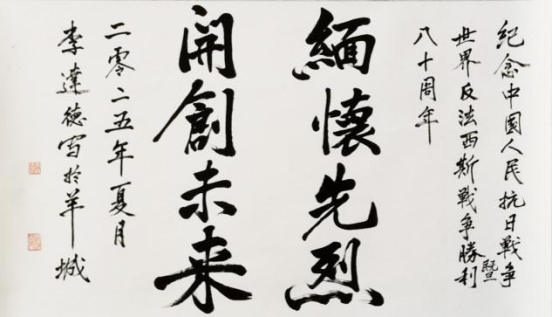 紀念中國人民抗日戰争暨
世界反法西斯戰争勝利
八十周年
緬懷先烈
開創未来
二零二五年夏月
李達德寫於羊城